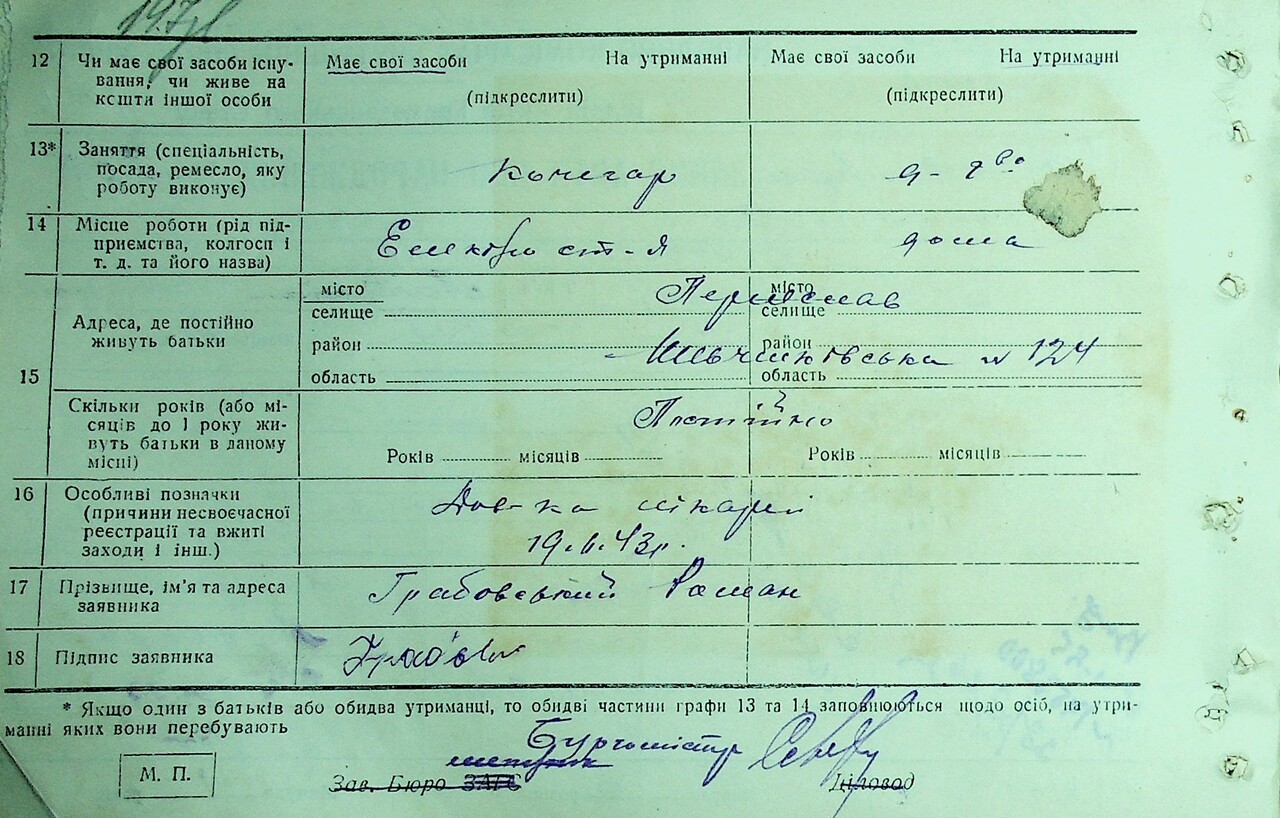 12 Чи має свої засоби існу-
вання, чи живе на
кошти іншої особи
Має свої засоби На утриманні
(підкреслити)
Має свої засоби На утриманні
(підкреслити)
13* Заняття (спеціальність,
посада, ремесло, яку
роботу виконує)
Кочегар
д-г во
14 Місце роботи (рід під-
приємства, колгосп і
т. д. та його назва)
Електро ст-я
дома
15
Адреса, де постійно
живуть батьки
місто
селище
район
область
місто
селище
район
область
Переяслав
124
Скільки років (або мі-
сяців до 1 року жи-
вуть батьки в даному
місці)
Постійно
Років місяців
Років місяців
16 Особливі позначки
(причини несвоєчасної
реєстрації та вжиті
заходи і інш.)
Дов-ка лікарні
43р.
17 Прізвище, ім'я та адреса
заявника
Грабовський Роман
18 Підпис заявника
* Якщо один з батьків або обидва утриманці, то обидві частини графи 13 та 14 заповнюються щодо осіб, на утри-
манні яких вони перебувають
Бургомістр
М. П.
Зав. Бюро ЗАГС
Діловод